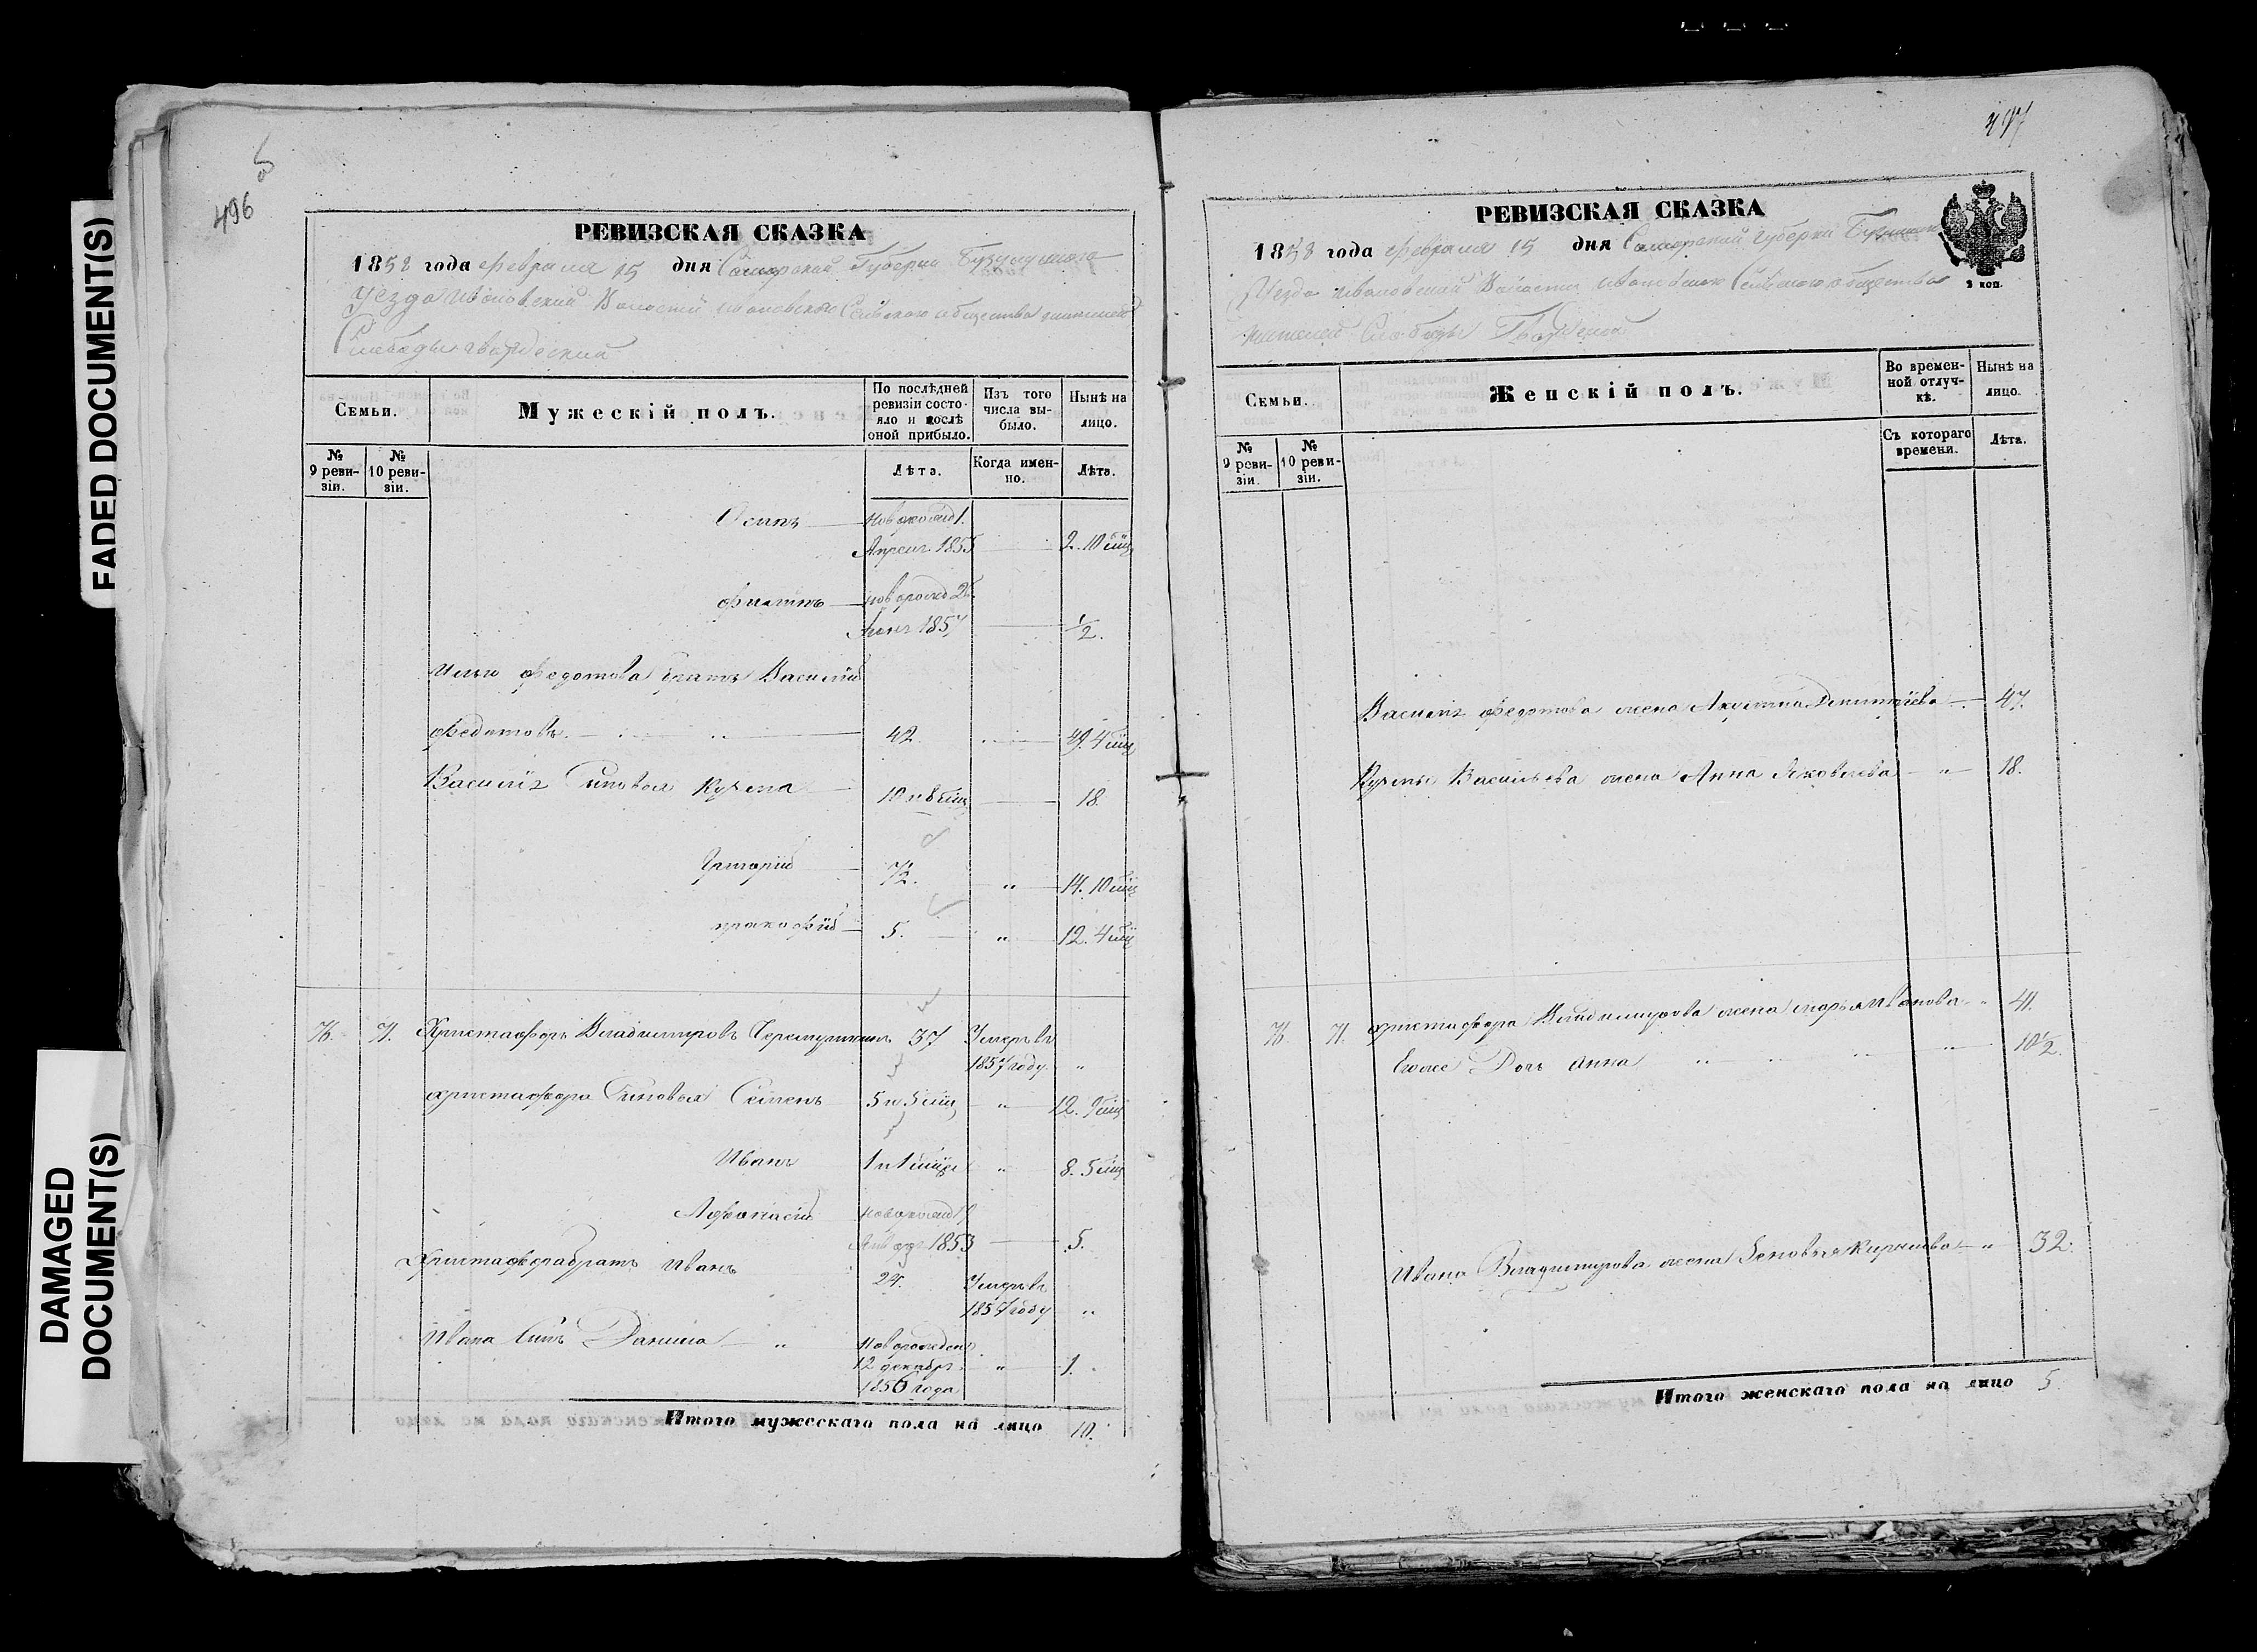 FADED DOCUMENT(S)
DAMAGED
DOCUMENT(S)
496
РЕВИЗСКАЯ СКАЗКА
1858 года февраля 15 дня Самарской Губернии Бузулукскаго
Уезда Ивановской Волости Ивановскаго Сельскаго общества
Слободы Гвардейский
Семьи.
Мужескій полъ.
По послѣдней ревизіи состояло и послѣ оной прибыло.
Изъ того числа выбыло.
Нынѣ на лицо.
№ 9 ревизіи.
№ 10 ревизіи.
Лѣта.
Когда именно.
Лѣта.
Осипъ новорожд 1. Апреля 1855 2. 10 мц
Филипъ новорожд 1857 1/2.
Ильи Федотова братъ Василий
Федотовъ. 42 49. 4 мц
Василія Сыновья Кузьма 10 и 8 мц 18.
Григорий 7 1/2. " 14. 10 мц
прокофий 5. " 12. 4 мц
76. 71. Христофоръ Владимировъ 37 Умеръ въ
1857 году "
Христофора Сыновья Семенъ 5 и 5 мц " 12. 9 мц
Иванъ 1 и 1 мц " 8. 5 мц
Афонасий новорожд
Январ 1853 5.
Христофора братъ Иванъ 24. Умеръ въ
году "
Ивана Сынъ Данила " новорожден
12 декабря " 1.
1856 года
Итого мужескаго пола на лицо 10.
497
РЕВИЗСКАЯ СКАЗКА
1858 года февраля 15 дня Самарской Губернии
Уезда Ивановской Волости Ивановскаго Сельскаго общества
жителей Слободы Гвардейской
2 коп.
Семьи.
Женскій полъ.
Во временной отлучкѣ.
Нынѣ на лицо.
№ 9 ревизіи.
№ 10 ревизіи.
Съ котораго времени.
Лѣта.
Василія Федотова жена Акулина 47.
Кузьмы Васильева жена Анна Яковлева " 18.
76. 71. Христофора Владимирова жена Марья Иванова " 41.
Егоже Дочь Анна " 10 1/2.
Ивана Владимирова жена " 32.
Итого женскаго пола на лицо 5